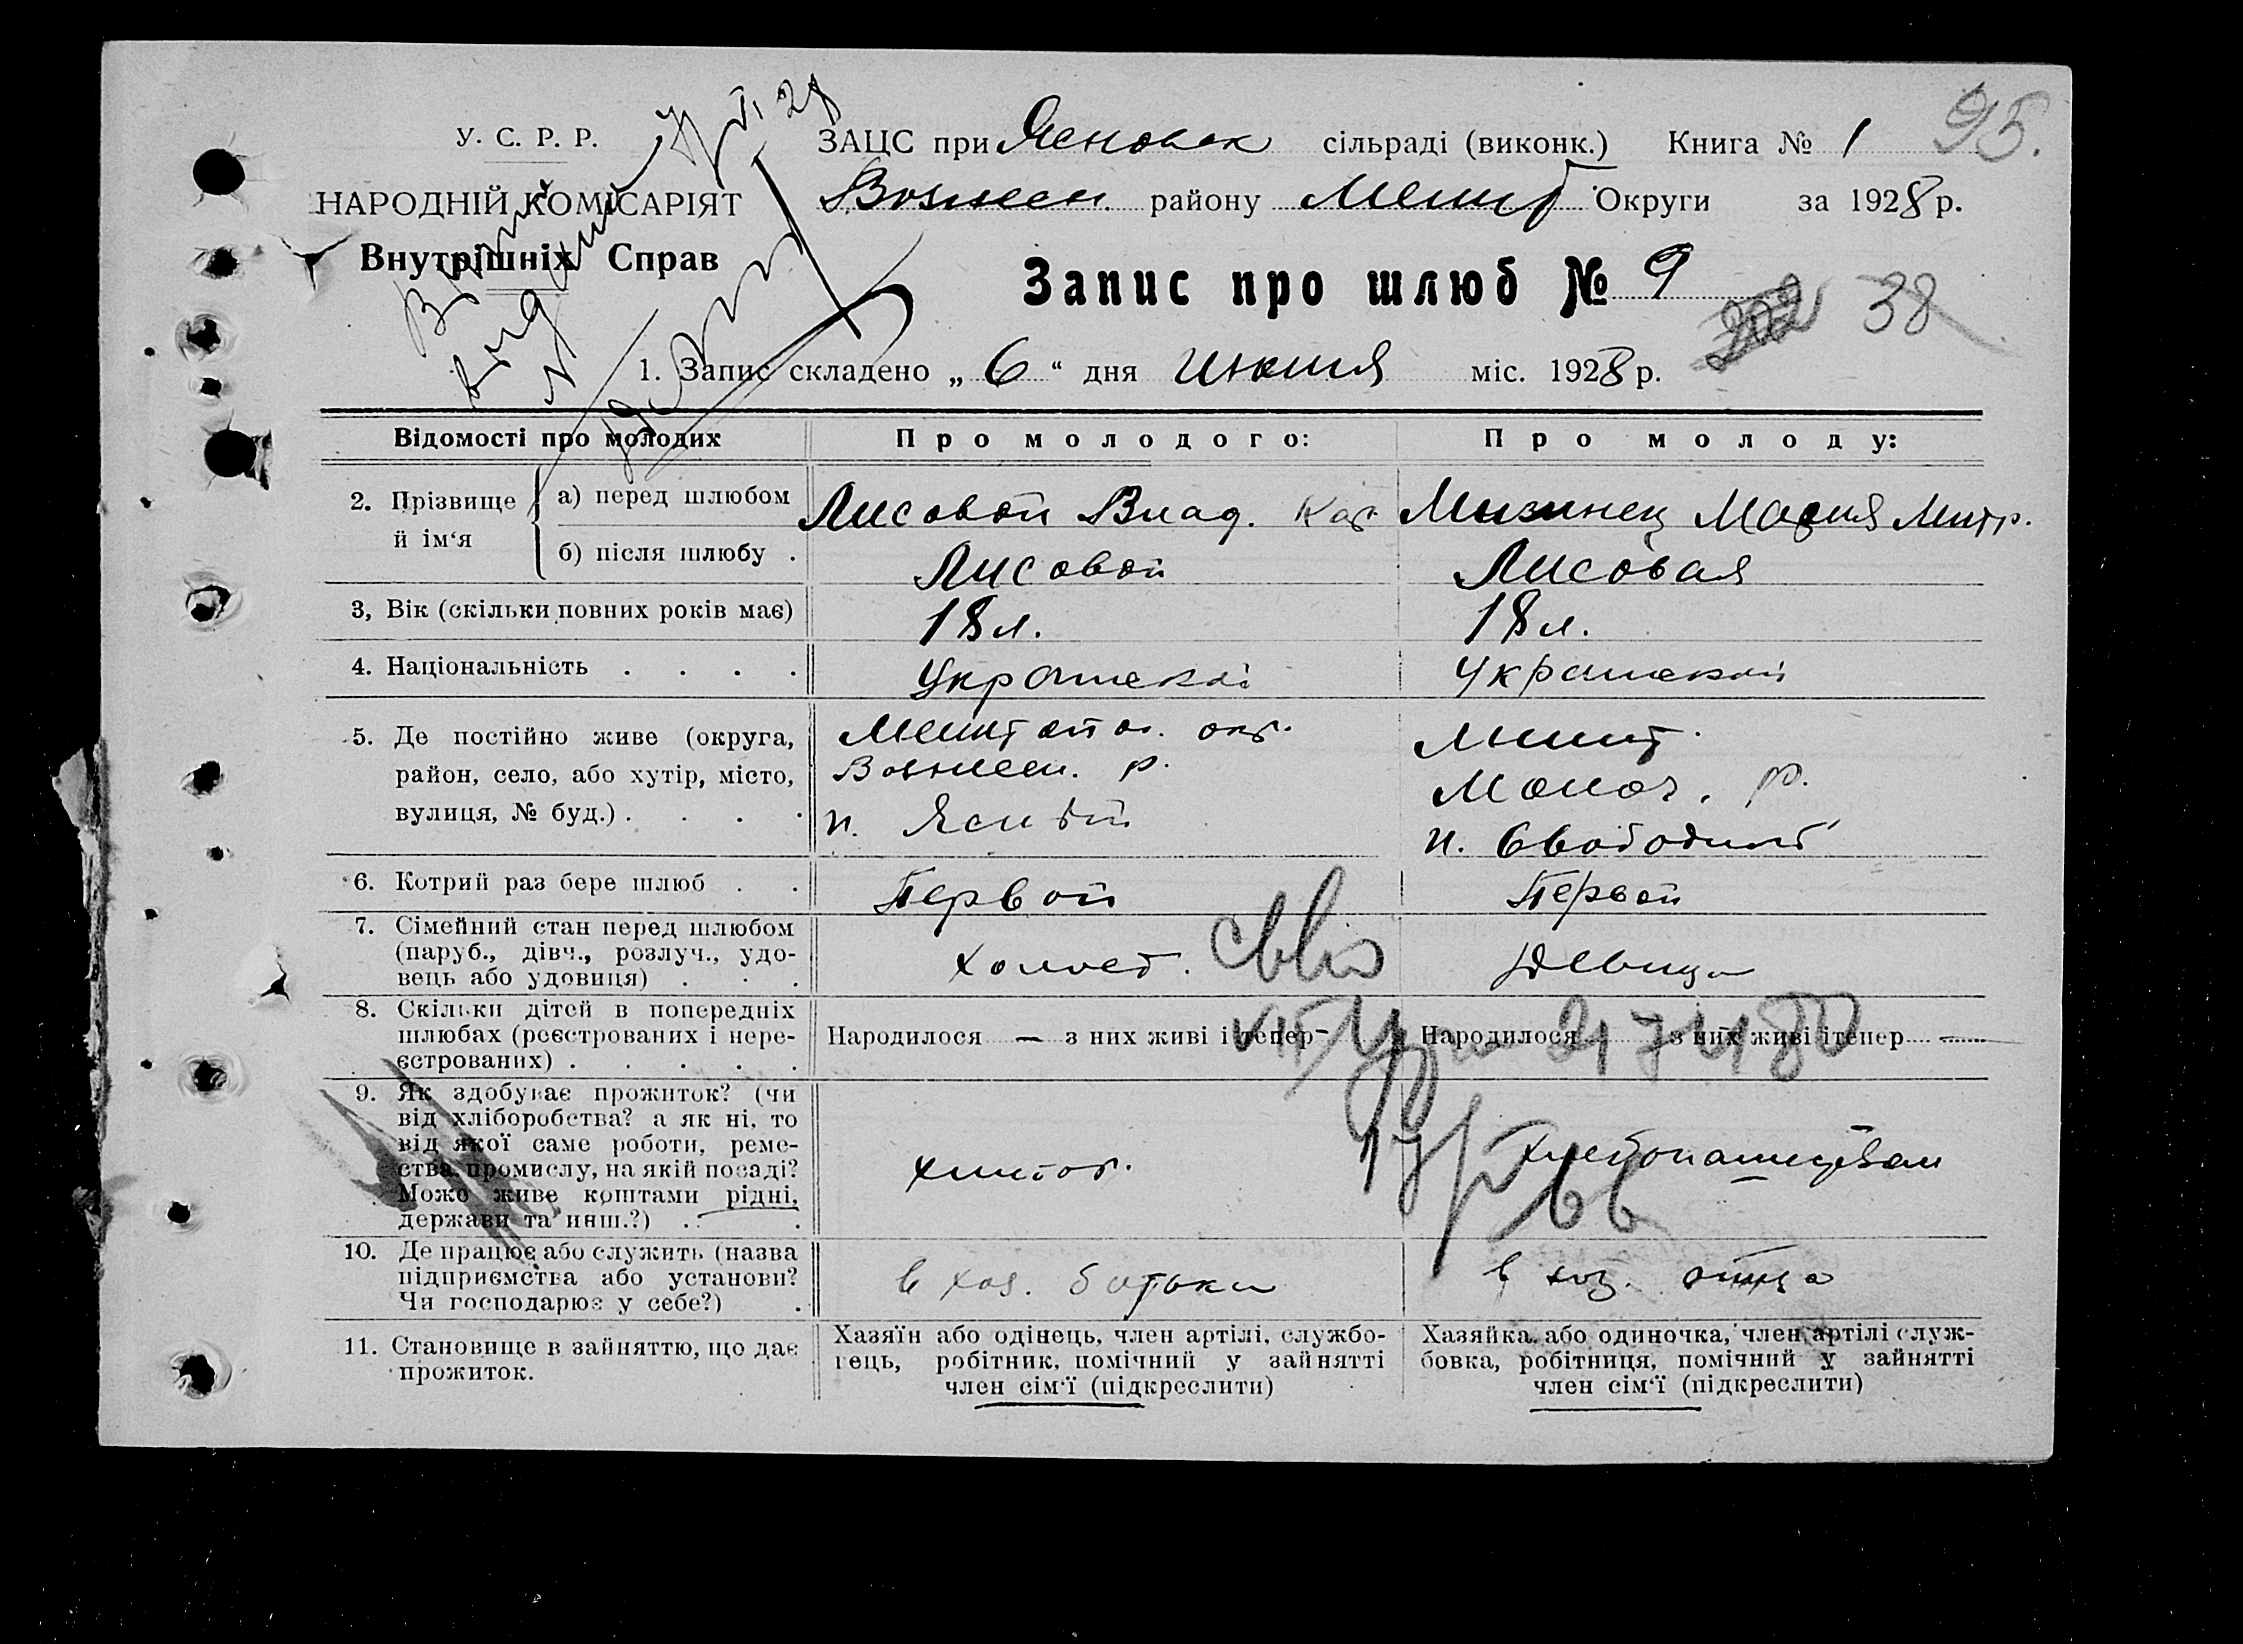 95.
У. С. Р. Р.
НАРОДНІЙ КОМІСАРІЯТ
Внутрішніх Справ
VI 28
ЗАЦС при Ясновск сільраді (виконк.) Книга № 1
Вознесен. району Мелит Округи за 1928 р.
Запис про шлюб № 9
38
1. Запис складено „ 6 “ дня Июня міс. 1928 р.
Відомості про молодих
Про молодого:
Про молоду:
2. Прізвище й ім‘я
а) перед шлюбом
Лисовой Влад.
Мизинец Мария Митр.
б) після шлюбу .
Лисовой
Лисовая
3, Вік (скільки повних років має)
18 л.
18 л.
4. Національність . . . .
Украинской
Украинской
5. Де постійно живе (округа,
район, село, або хутір, місто,
вулиця, № буд.) . . . .
Мелитопол. окр.
Вознесен. р.
п. Ясный
Мелит.
р.
п.
6. Котрий раз бере шлюб . .
Первой
Первой
7. Сімейний стан перед шлюбом
(паруб., дівч., розлуч., удо-
вець або удовиця) . . .
Холост.
Девица
8. Скільки дітей в попередніх
шлюбах (реєстрованих і нере-
єстрованих) . . . . .
Народилося — з них живі і тепер -
Народилося з них живі ітепер —
9. Як здобуває прожиток? (чи
від хліборобства? а як ні, то
від якої саме роботи, реме-
ства, промислу, на якій посаді?
Може живе коштами рідні,
держави та инш.?) . .
хлебопашеством
10. Де працює або служить (назва
підприємства або установи?
Чи господарює у себе?) .
в хоз. батьки
в хоз. отца
11. Становище в зайняттю, що дає
прожиток.
Хазяїн або одінець, член артілі, службо-
вець, робітник, помічний у зайнятті
член сім‘ї (підкреслити)
Хазяйка, або одиночка, член артілі служ-
бовка, робітниця, помічний у зайнятті
член сім‘ї (підкреслити)